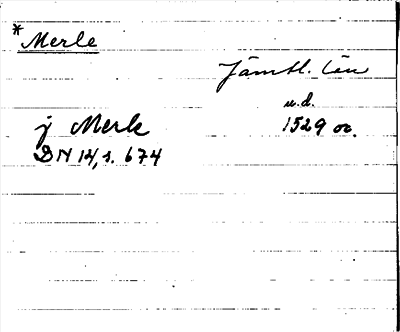 *Merle
Jämtl. län
u.d.
j Merle
1529 oo.
DN 14, s. 674